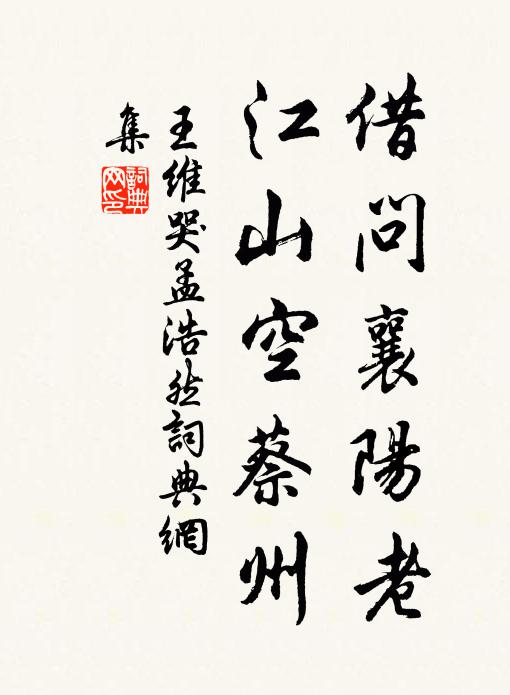 借問襄陽老
江山空蔡州
王維哭孟浩然詞典網
集
詞典網印